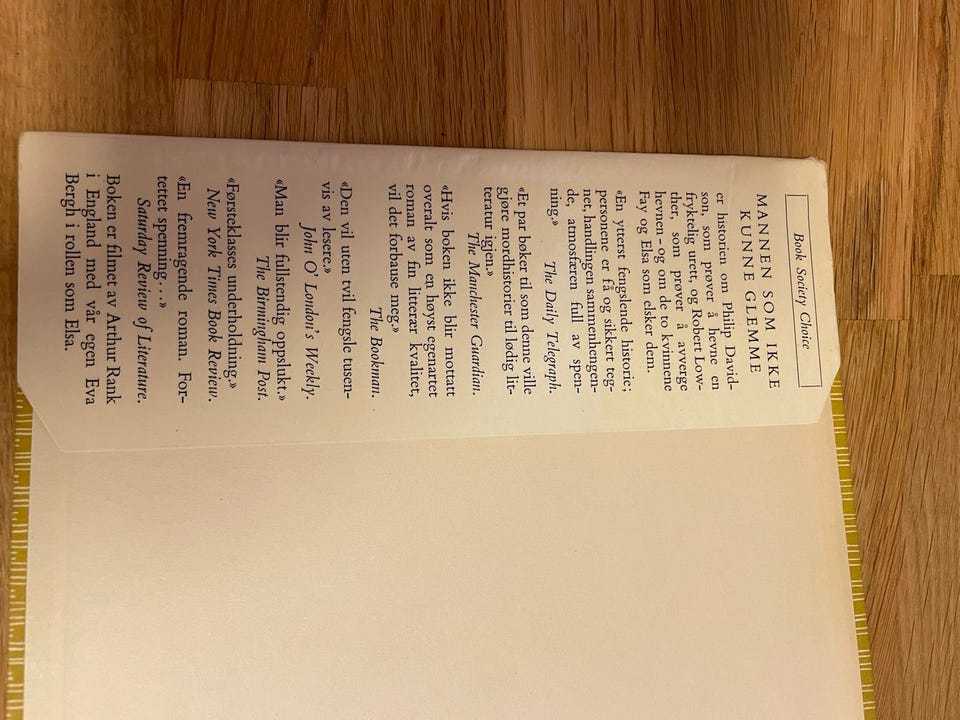 Book Society Choice
MANNEN SOM IKKE
KUNNE GLEMME
er historien om Philip David-
son, som prøver å hevne en
fryktelig urett, og Robert Low-
ther, som prøver å avverge
hevnen – og om de to kvinnene
Fay og Elsa som elsker dem.
«En ytterst fengslende historie;
personene er få og sikkert teg-
net, handlingen sammenhengen-
de, atmosfæren full av spen-
ning.»
The Daily Telegraph.
«Et par bøker til som denne ville
gjøre mordhistorier til lødig lit-
teratur igjen.»
The Manchester Guardian.
«Hvis boken ikke blir mottatt
overalt som en høyst egenartet
roman av fin litterær kvalitet,
vil det forbause meg.»
The Bookman.
«Den vil uten tvil fengsle tusen-
vis av lesere.»
John O' London's Weekly.
«Man blir fullstendig oppslukt.»
The Birmingham Post.
«Førsteklasses underholdning.»
New York Times Book Review.
«En fremragende roman. For-
tettet spenning...»
Saturday Review of Literature.
Boken er filmet av Arthur Rank
i England med vår egen Eva
Bergh i rollen som Elsa.